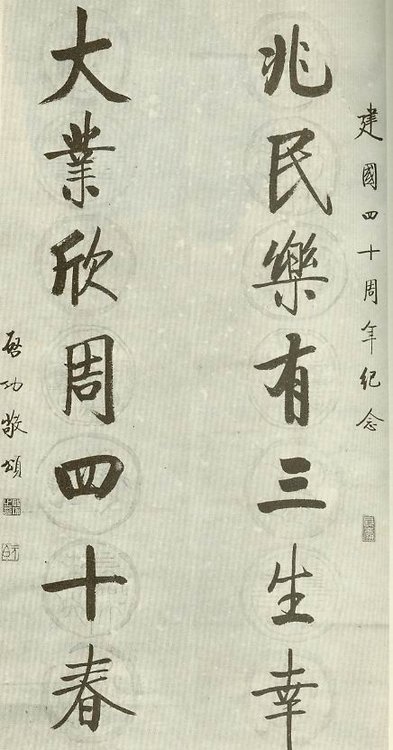 建國四十周年纪念
兆民樂有三生幸
大業欣周四十春
啓功敬頌